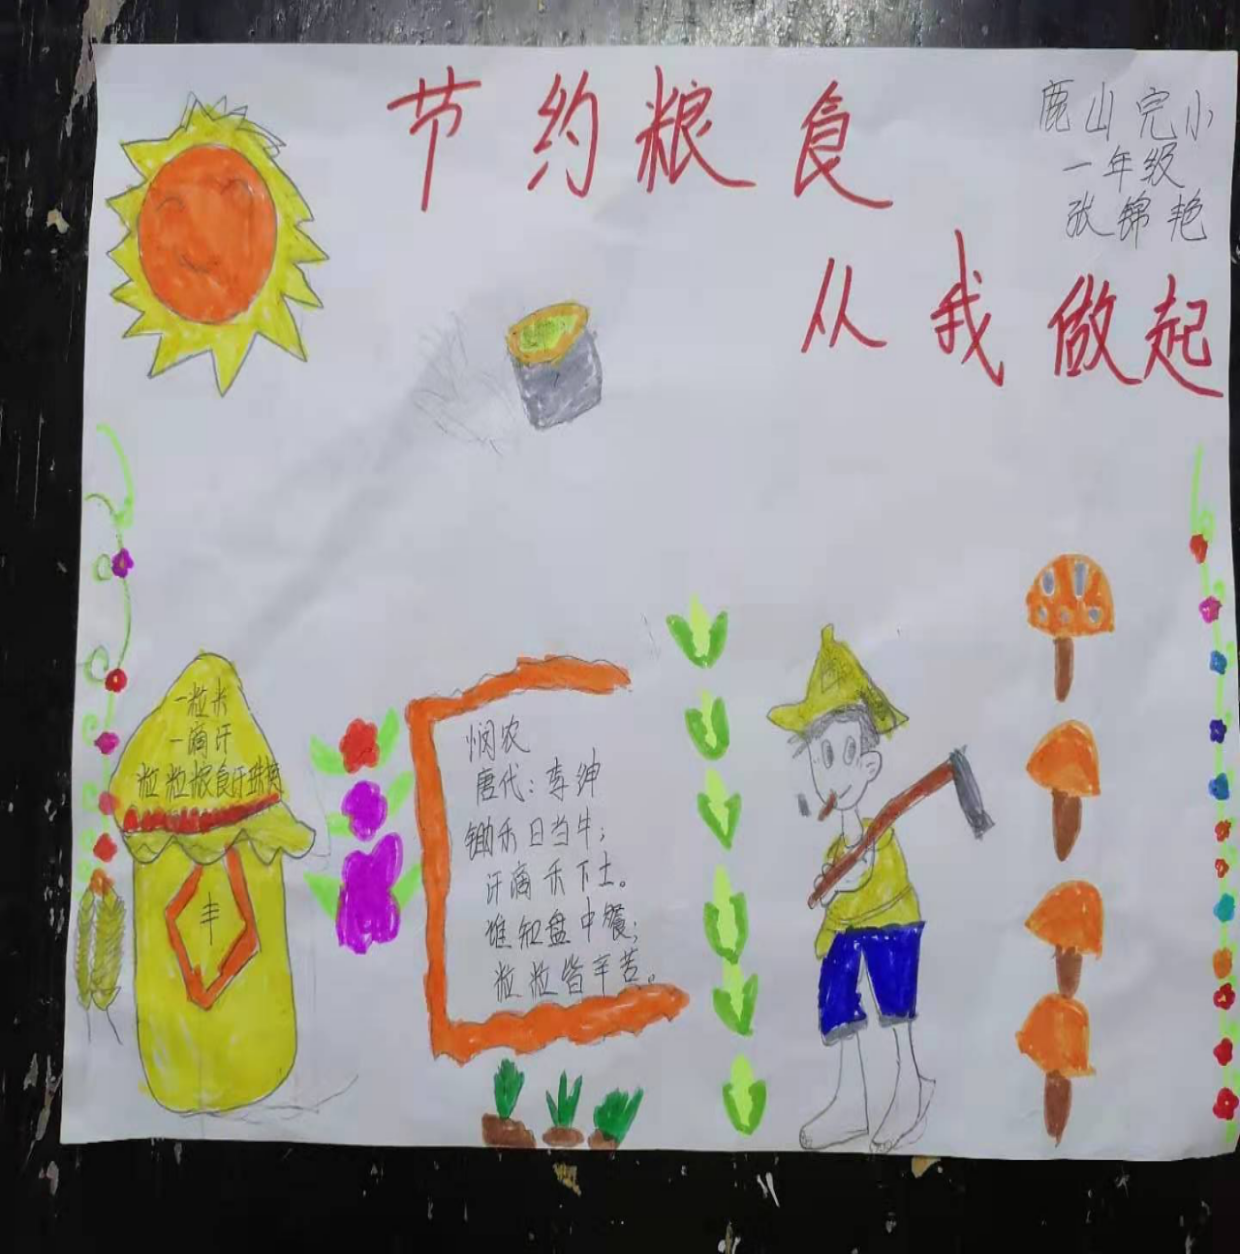 节约粮食
从我做起
鹿山完小
一年级
张锦艳
一粒米
一滴汗
粒粒粮食汗珠换
丰
悯农
唐代：李绅
锄禾日当午；
汗滴禾下土。
谁知盘中餐；
粒粒皆辛苦。